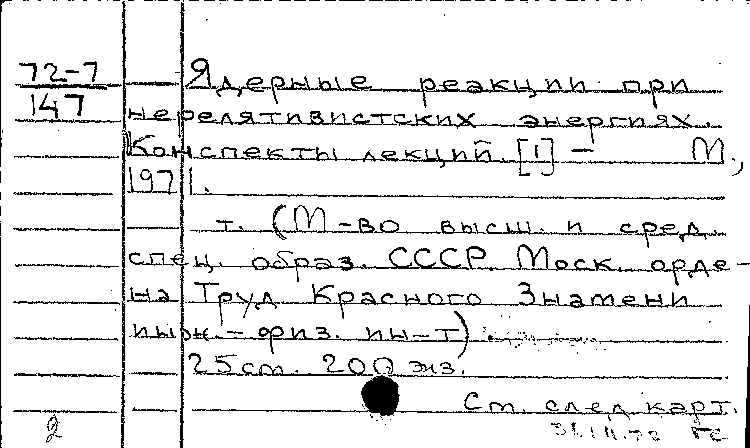 72-7 Ядерные реакции при
147 нерелятивистских энергиях.
Конспекты лекций. [1] – М.,
1971.
т. (М-во высш. и сред.
спец. образ. СССР. Моск. орде-
на Труд Красного Знамени
инж.-физ. ин-т)
25 см. 200 экз.
См. след карт.
2